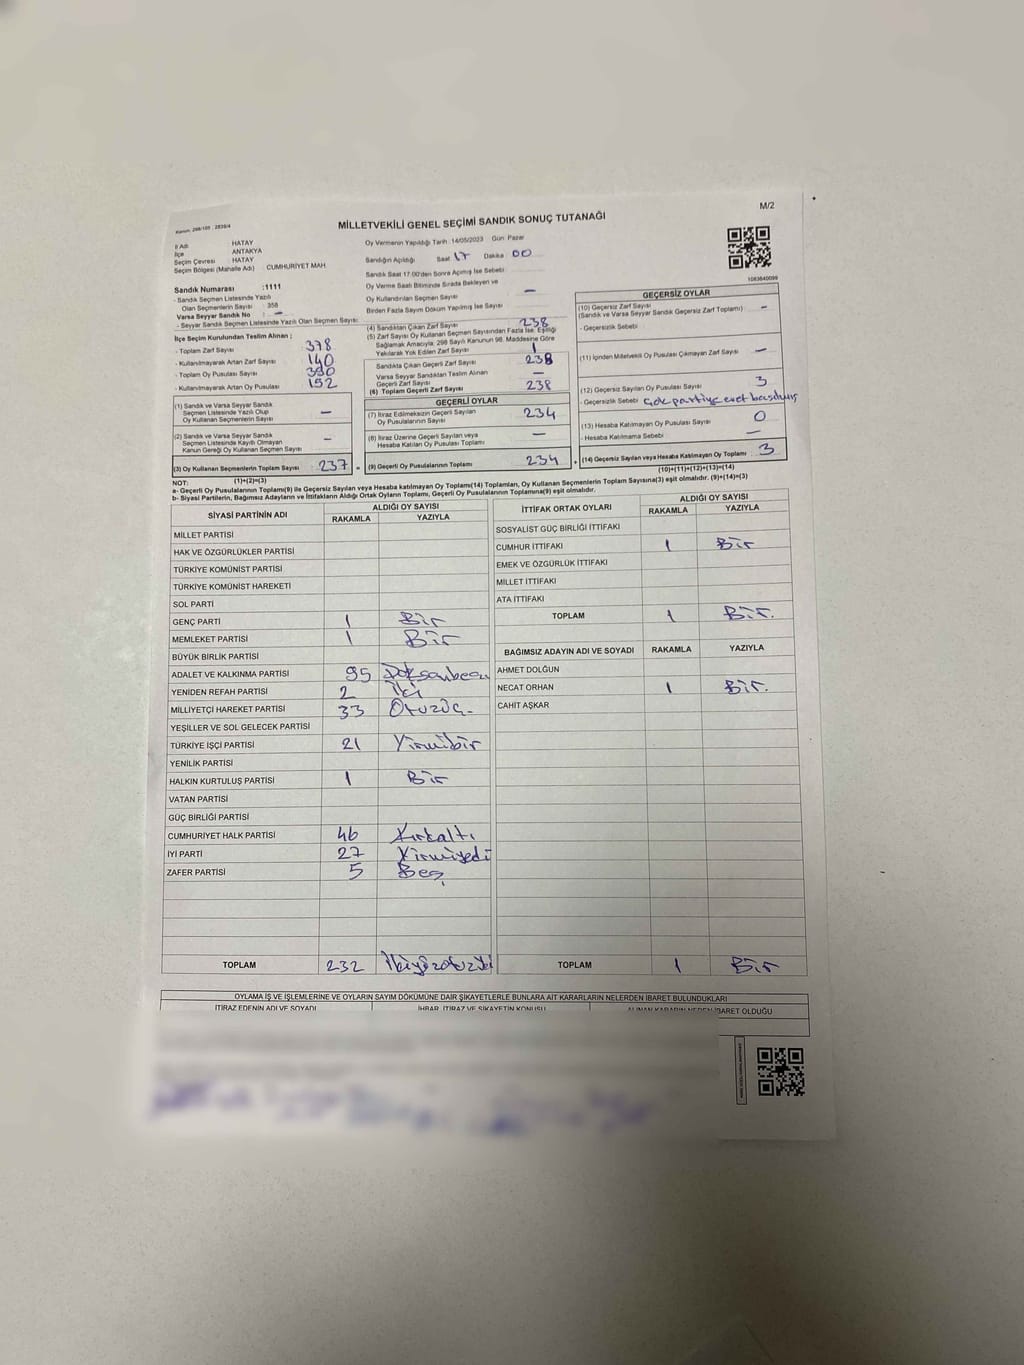 M/2
Kanun: 298/105 : 2839/4
MİLLETVEKİLİ GENEL SEÇİMİ SANDIK SONUÇ TUTANAĞI
İl Adı HATAY
İlçe ANTAKYA
Seçim Çevresi HATAY
Seçim Bölgesi (Mahalle Adı) CUMHURİYET MAH.
Sandık Numarası :1111
- Sandık Seçmen Listesinde Yazılı
Olan Seçmenlerin Sayısı : 358
Varsa Seyyar Sandık No : -
- Seyyar Sandık Seçmen Listesinde Yazılı Olan Seçmen Sayısı:
İlçe Seçim Kurulundan Teslim Alınan ;
- Toplam Zarf Sayısı 378
- Kullanılmayarak Artan Zarf Sayısı 140
- Toplam Oy Pusulası Sayısı 390
- Kullanılmayarak Artan Oy Pusulası 152
(1) Sandık ve Varsa Seyyar Sandık
Seçmen Listesinde Yazılı Olup
Oy Kullanan Seçmenlerin Sayısı -
(2) Sandık ve Varsa Seyyar Sandık
Seçmen Listesinde Kayıtlı Olmayan
Kanun Gereği Oy Kullanan Seçmen Sayısı -
(3) Oy Kullanan Seçmenlerin Toplam Sayısı 237 =
(1)+(2)=(3)
Oy Vermenin Yapıldığı Tarih : 14/05/2023 Gün: Pazar
Sandığın Açıldığı Saat 17 Dakika 00
Sandık Saat 17:00'den Sonra Açılmış İse Sebebi
Oy Verme Saati Bitiminde Sırada Bekleyen ve
Oy Kullandırılan Seçmen Sayısı -
Birden Fazla Sayım Döküm Yapılmış İse Sayısı
(4) Sandıktan Çıkan Zarf Sayısı 238
(5) Zarf Sayısı Oy Kullanan Seçmen Sayısından Fazla İse, Eşitliği
Sağlamak Amacıyla; 298 Sayılı Kanunun 98. Maddesine Göre
Yakılarak Yok Edilen Zarf Sayısı 1
Sandıkta Çıkan Geçerli Zarf Sayısı 238
Varsa Seyyar Sandıktan Teslim Alınan
Geçerli Zarf Sayısı -
(6) Toplam Geçerli Zarf Sayısı 238
GEÇERLİ OYLAR
(7) İtiraz Edilmeksizin Geçerli Sayılan
Oy Pusulalarının Sayısı 234
(8) İtiraz Üzerine Geçerli Sayılan veya
Hesaba Katılan Oy Pusulası Toplamı -
(9) Geçerli Oy Pusulalarının Toplamı 234 +
1083640099
GEÇERSİZ OYLAR
(10) Geçersiz Zarf Sayısı
(Sandık ve Varsa Seyyar Sandık Geçersiz Zarf Toplamı) -
- Geçersizlik Sebebi
(11) İçinden Milletvekili Oy Pusulası Çıkmayan Zarf Sayısı -
(12) Geçersiz Sayılan Oy Pusulası Sayısı 3
- Geçersizlik Sebebi Çok partiye evet basılmış
(13) Hesaba Katılmayan Oy Pusulası Sayısı 0
- Hesaba Katılmama Sebebi -
(14) Geçersiz Sayılan veya Hesaba Katılmayan Oy Toplamı 3
(10)+(11)+(12)+(13)=(14)
NOT:
a- Geçerli Oy Pusulalarının Toplamı(9) ile Geçersiz Sayılan veya Hesaba katılmayan Oy Toplamı(14) Toplamları, Oy Kullanan Seçmenlerin Toplam Sayısına(3) eşit olmalıdır. (9)+(14)=(3)
b- Siyasi Partilerin, Bağımsız Adayların ve İttifakların Aldığı Ortak Oyların Toplamı, Geçerli Oy Pusulalarının Toplamına(9) eşit olmalıdır.
SİYASİ PARTİNİN ADI ALDIĞI OY SAYISI
RAKAMLA YAZIYLA
MİLLET PARTİSİ
HAK VE ÖZGÜRLÜKLER PARTİSİ
TÜRKİYE KOMÜNİST PARTİSİ
TÜRKİYE KOMÜNİST HAREKETİ
SOL PARTİ
GENÇ PARTİ 1 Bir
MEMLEKET PARTİSİ 1 Bir
BÜYÜK BİRLİK PARTİSİ
ADALET VE KALKINMA PARTİSİ 95 Doksanbeş
YENİDEN REFAH PARTİSİ 2 İki
MİLLİYETÇİ HAREKET PARTİSİ 33 Otuzüç
YEŞİLLER VE SOL GELECEK PARTİSİ
TÜRKİYE İŞÇİ PARTİSİ 21 Yirmibir
YENİLİK PARTİSİ
HALKIN KURTULUŞ PARTİSİ 1 Bir
VATAN PARTİSİ
GÜÇ BİRLİĞİ PARTİSİ
CUMHURİYET HALK PARTİSİ 46 Kırkaltı
İYİ PARTİ 27 Yirmiyedi
ZAFER PARTİSİ 5 Beş
TOPLAM 232 İkiyüzotuziki
İTTİFAK ORTAK OYLARI ALDIĞI OY SAYISI
RAKAMLA YAZIYLA
SOSYALİST GÜÇ BİRLİĞİ İTTİFAKI
CUMHUR İTTİFAKI 1 Bir
EMEK VE ÖZGÜRLÜK İTTİFAKI
MİLLET İTTİFAKI
ATA İTTİFAKI
TOPLAM 1 Bir.
BAĞIMSIZ ADAYIN ADI VE SOYADI RAKAMLA YAZIYLA
AHMET DOLĞUN
NECAT ORHAN 1 Bir.
CAHİT AŞKAR
TOPLAM 1 Bir
OYLAMA İŞ VE İŞLEMLERİNE VE OYLARIN SAYIM DÖKÜMÜNE DAİR ŞİKAYETLERLE BUNLARA AİT KARARLARIN NELERDEN İBARET BULUNDUKLARI
İTİRAZ EDENİN ADI VE SOYADI İHBAR, İTİRAZ VE ŞİKAYETİN KONUSU ALINAN KARARIN NEDEN İBARET OLDUĞU